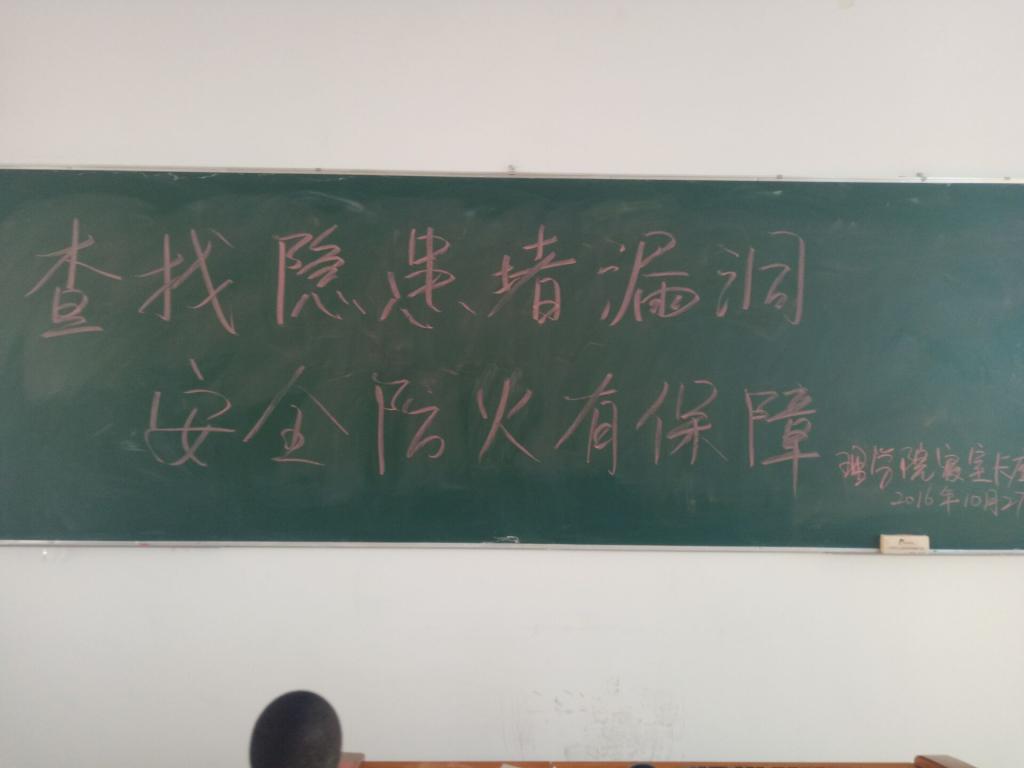 查找隐患堵漏洞
安全防火有保障
理学院寝室卡
2016年10月27